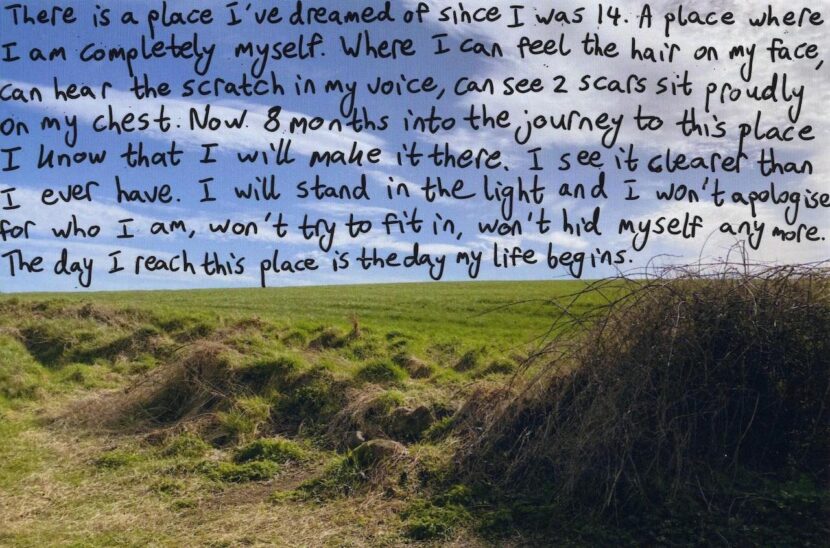 There is a place I've dreamed of since I was 14. A place where
I am completely myself. Where I can feel the hair on my face,
can hear the scratch in my voice, can see 2 scars sit proudly
on my chest. Now 8 months into the journey to this place
I know that I will make it there. I see it clearer than
I ever have. I will stand in the light and I won't apologise
for who I am, won't try to fit in, won't hid myself any more.
The day I reach this place is the day my life begins.